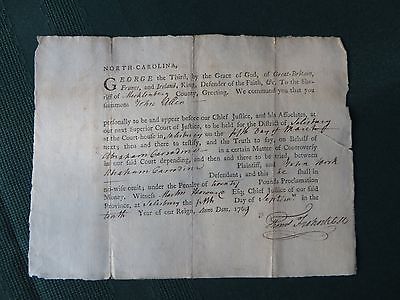 NORTH-CAROLINA,
GEORGE the Third, by the Grace of God, of Great-Britain,
France, and Ireland, King, Defender of the Faith, &c. To the She-
riff of Mecklenburg County, Greeting. We command you that you
summons John Allen
personally to be and appear before our Chief Justice, and his Associates, at
our next Superior Court of Justice, to be held for the District of Salisbury
at the Court-house in Salisbury on the fifth Day of March
then and there to testify, and the Truth to say, on Behalf of
Abraham in a certain Matter of Controversy
in our said Court depending, and then and there to be tried, between
John Plaintiff, and
Abraham Defendant; and this he shall in
no-wise omit, under the Penalty of twenty Pounds Proclamation
Money. Witness Martin Howard Esq; Chief Justice of our said
Province, at Salisbury the fifth Day of Septem
tenth Year of our Reign, Anno Dom. 1769